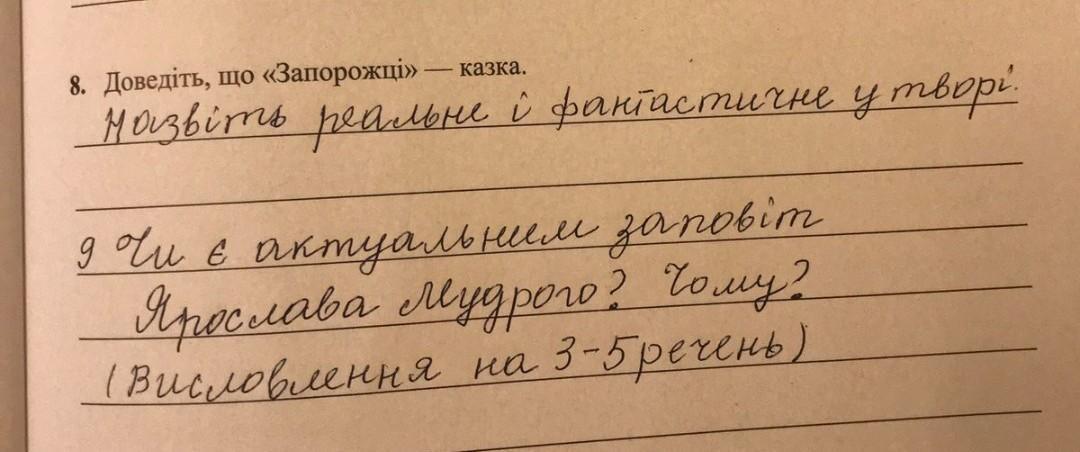 8. Доведіть, що «Запорожці» — казка.
Назвіть реальне і фантастичне у творі.
9 Чи є актуальним заповіт
Ярослава Мудрого? Чому?
(Висловлення на 3-5 речень)